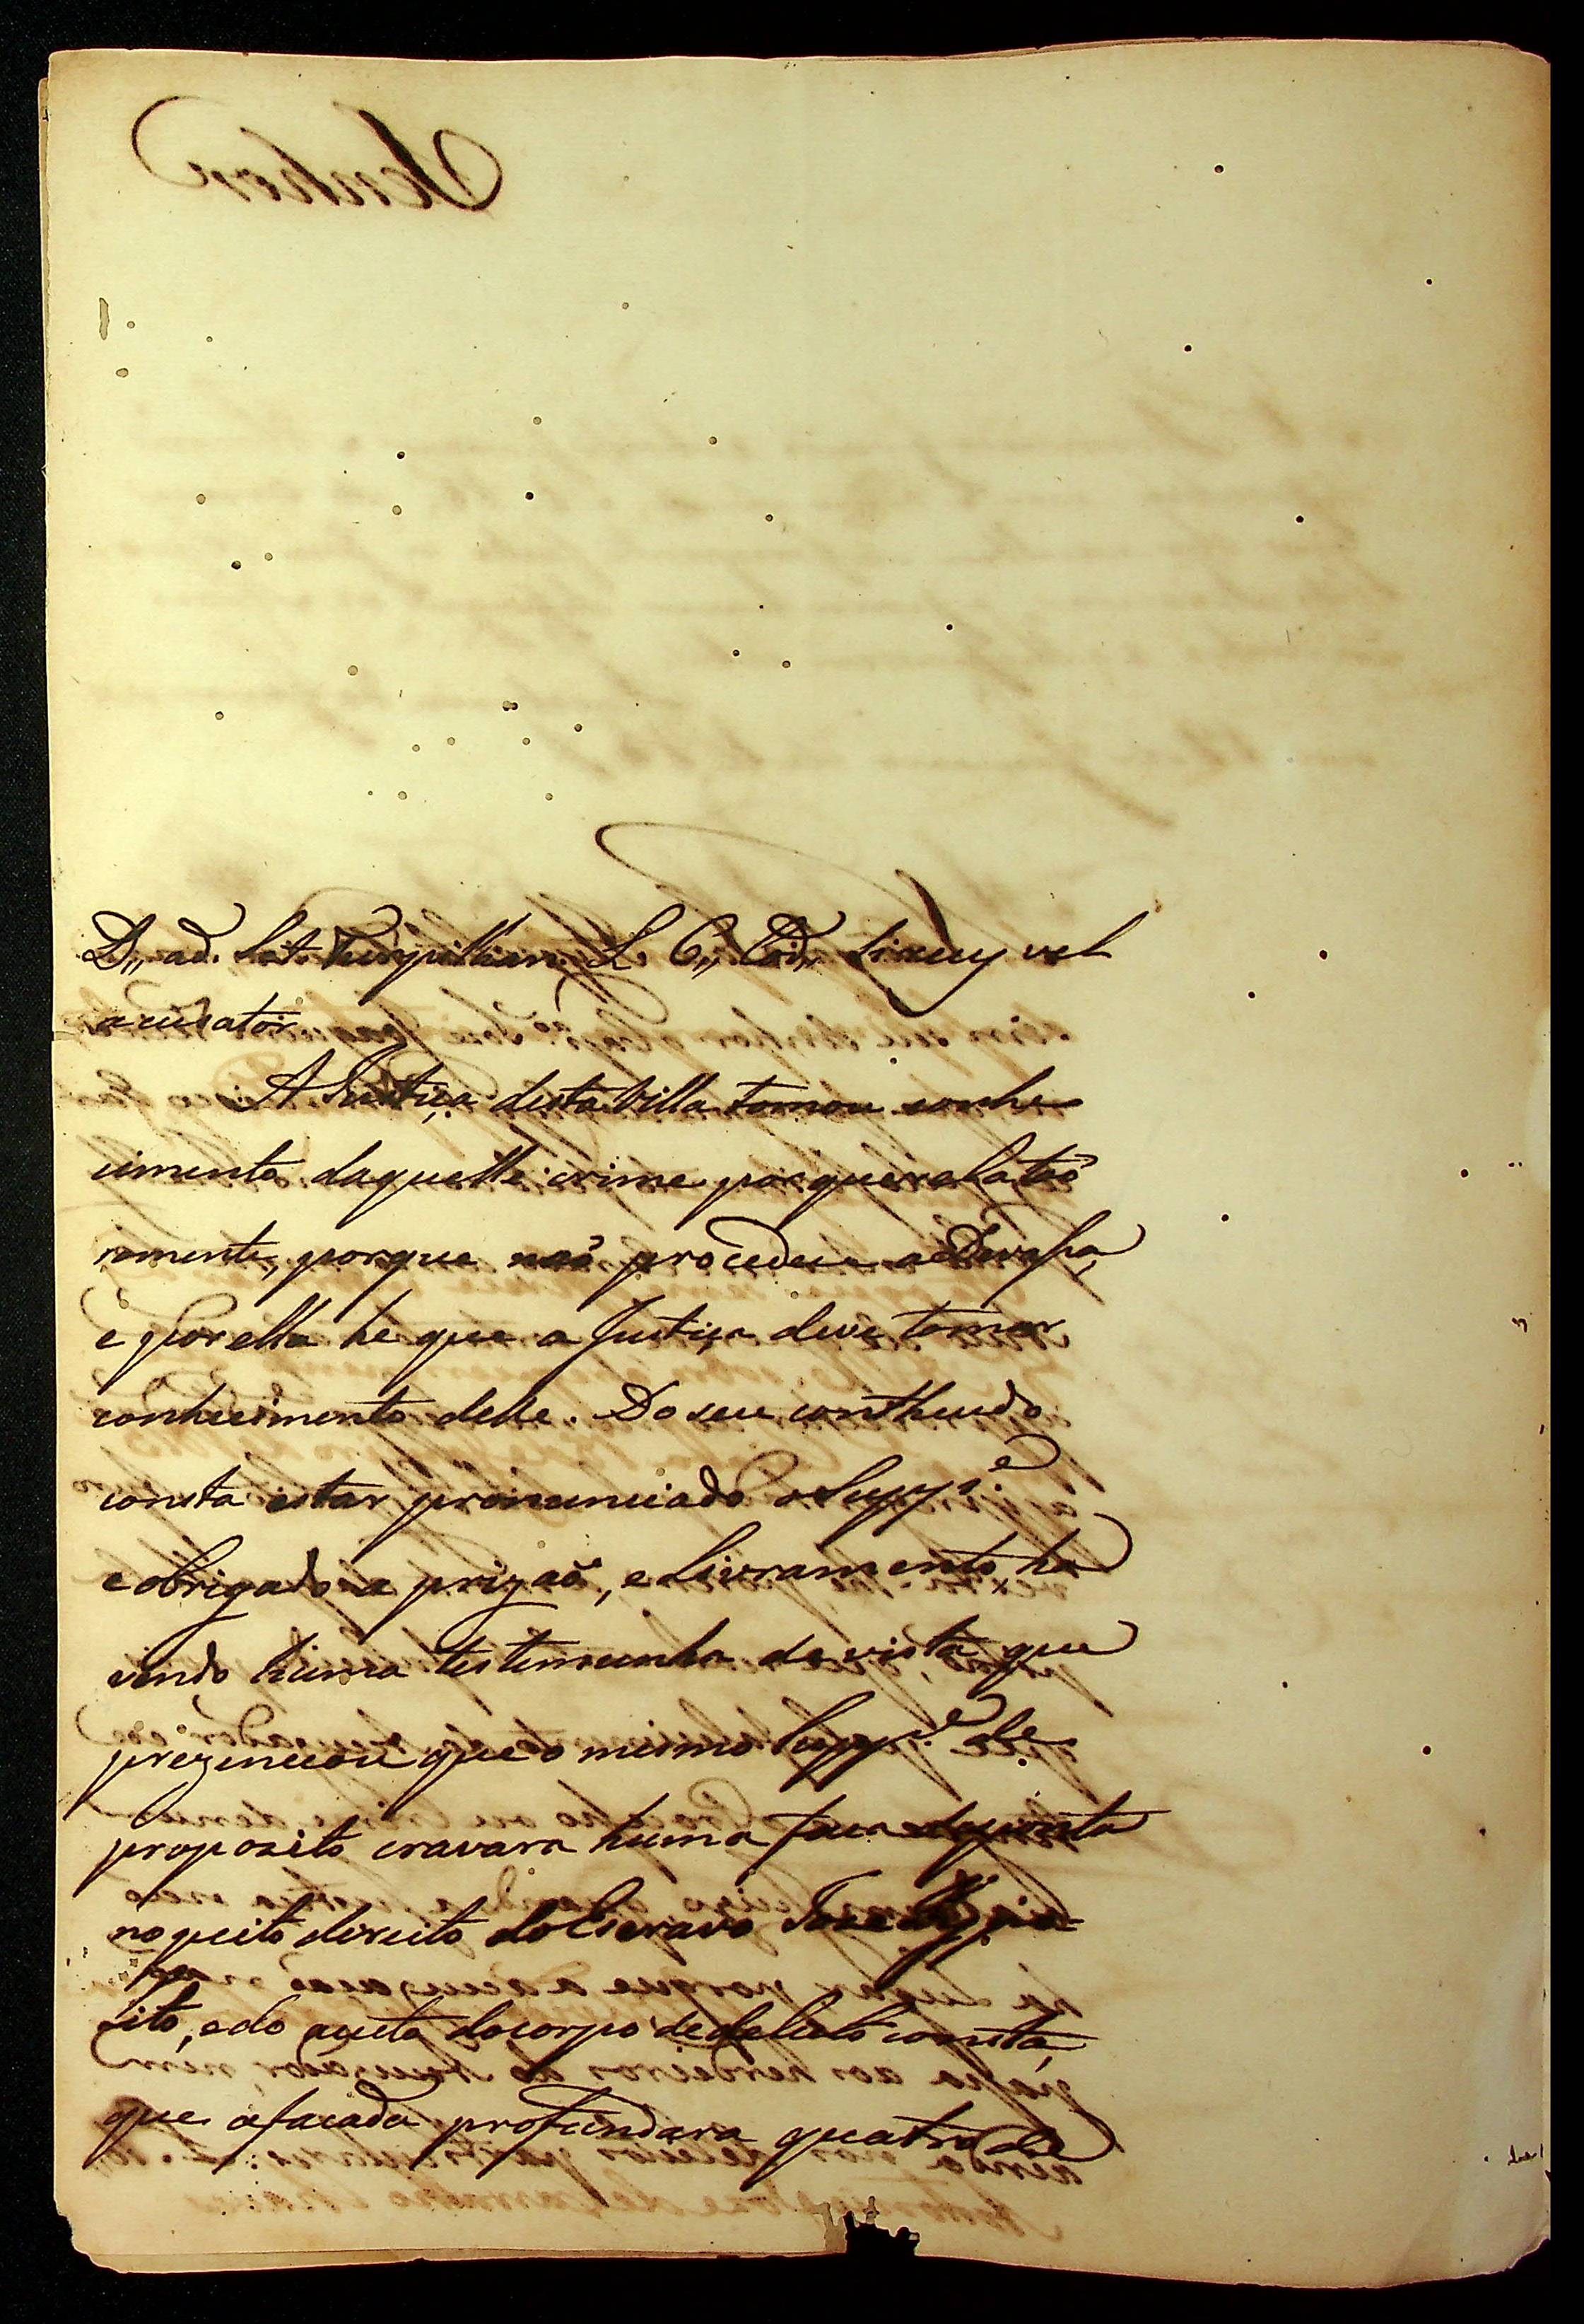 D,, ad. Set. Turpillian. L. 6,, Cod,, si reus vel
accusator
A Justiça desta Villa tomou conhe
cimento daquelle crime por querela taõ
somente, porque naõ procedeu a Devaça,
e por ella he que a Justiça deve tomar
conhecimento delle. Do seu contheudo
consta estar pronunciado o Supp.e
e obrigado a prizaõ, e Livramento, ha
vendo huma testemunha de vista que
prezenciou que o mesmo Supp.e de
proposito cravara huma faca de ponta
no peito direito do Escravo Jose
sito, e do auto do corpo de delicto consta,
que a facada profundara quatro de